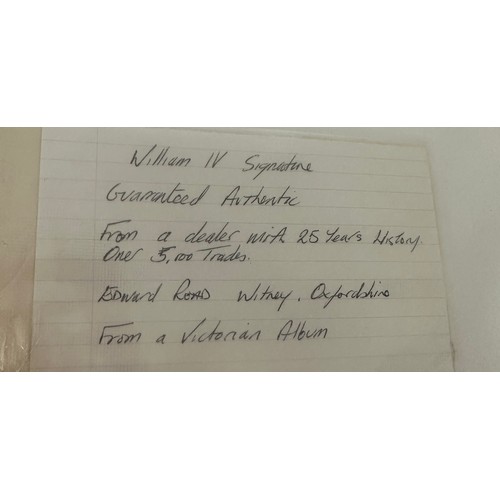 William IV Signature
Guaranteed Authentic
From a dealer with 25 Years History.
Over 5,000 Trades.
EDWARD ROAD Witney, Oxfordshire
From a Victorian Album